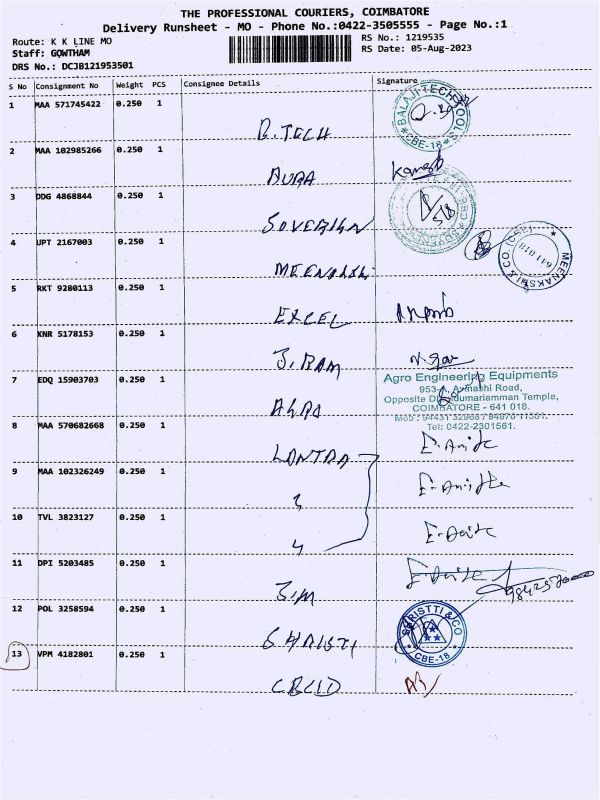 THE PROFESSIONAL COURIERS, COIMBATORE
Delivery Runsheet - MO - Phone No.:0422-3505555 - Page No.:1
Route: K K LINE MO
RS No.: 1219535
Staff: GOWTHAM
RS Date: 05-Aug-2023
DRS No.: DCJB121953501
S No Consignment No Weight PCS Consignee Details Signature
1 MAA 571745422 0.250 1
BALAJI TECH
CBE-18
B.TECH
2 MAA 102985266 0.250 1
AURA
3 DDG 4868844 0.250 1
SOVERIGN
4 UPT 2167003 0.250 1
MEENAKSHI & CO
641 018
MEENAKSHI
5 RKT 9280113 1
EXCEL
6 KNR 5178153 0.250 1
J.RAM
7 EDQ 15903703 0.250 1
Agro Engineering Equipments
Road,
Opposite Temple,
COIMBATORE - 641 018.
Tel: 0422-2301561.
AGRO
8 MAA 570682668 0.250 1
9 MAA 102326249 0.250 1
3
10 TVL 3823127 0.250 1
4
11 DPI 5203485 0.250 1
J.M
12 POL 3258594 0.250 1
SHRISTTI & CO
CBE-18
SHRISTI
13 VPM 4182801 0.250 1
CBCID